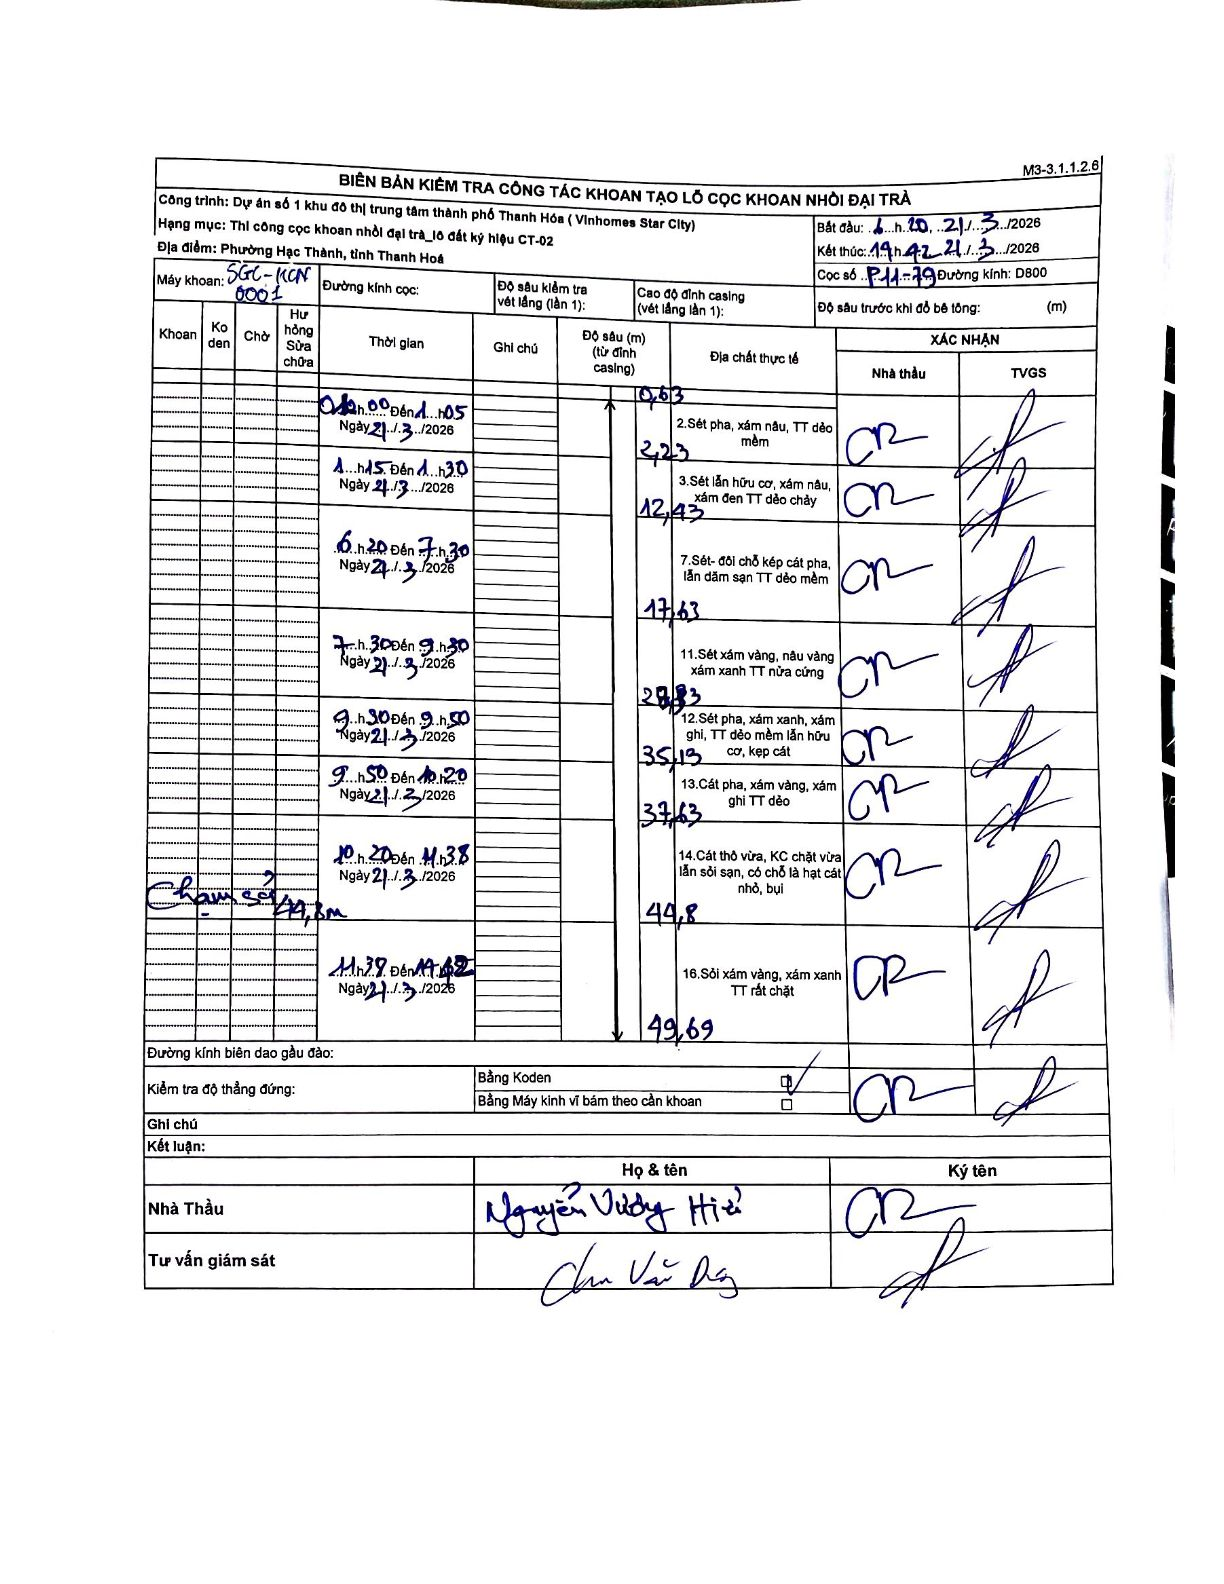 M3-3.1.1.2.6
BIÊN BẢN KIỂM TRA CÔNG TÁC KHOAN TẠO LỖ CỌC KHOAN NHỒI ĐẠI TRÀ
Công trình: Dự án số 1 khu đô thị trung tâm thành phố Thanh Hóa ( Vinhomes Star City)
Hạng mục: Thi công cọc khoan nhồi đại trà_lô đất ký hiệu CT-02
Địa điểm: Phường Hạc Thành, tỉnh Thanh Hoá
Bắt đầu: 6 h 20, 21/ 3 /2026
Kết thúc: h 42 21/ 3 /2026
Cọc số P11-79 Đường kính: D800
Máy khoan: SGC-KCN
0001
Đường kính cọc:
Độ sâu kiểm tra
vét lắng (lần 1):
Cao độ đỉnh casing
(vét lắng lần 1):
Độ sâu trước khi đổ bê tông: (m)
Khoan
Ko
den
Chờ
Hư
hỏng
Sửa
chữa
Thời gian
Ghi chú
Độ sâu (m)
(từ đỉnh
casing)
Địa chất thực tế
XÁC NHẬN
Nhà thầu
TVGS
0,63
h 00 Đến 1 h 05
Ngày 21/ 3 /2026
2.Sét pha, xám nâu, TT dẻo
mềm
2,23
1 h 15 Đến 1 h 30
Ngày 21/ 3 /2026
3.Sét lẫn hữu cơ, xám nâu,
xám đen TT dẻo chảy
12,43
6 h 20 Đến 7 h 30
Ngày 21/ 3 /2026
7.Sét- đôi chỗ kép cát pha,
lẫn dăm sạn TT dẻo mềm
17,63
7 h 30 Đến 9 h 30
Ngày 21/ 3 /2026
11.Sét xám vàng, nâu vàng
xám xanh TT nửa cứng
9 h 30 Đến 9 h 50
Ngày 21/ 3 /2026
12.Sét pha, xám xanh, xám
ghi, TT dẻo mềm lẫn hữu
cơ, kẹp cát
35,13
9 h 50 Đến 10 h 20
Ngày 21/ 3 /2026
13.Cát pha, xám vàng, xám
ghi TT dẻo
37,63
10 h 20 Đến 11 h 38
Ngày 21/ 3 /2026
14.Cát thô vừa, KC chặt vừa
lẫn sỏi sạn, có chỗ là hạt cát
nhỏ, bụi
Chạm sỏi 44,8m
44,8
11 h 38 Đến h 42
Ngày 21/ 3 /2026
16.Sỏi xám vàng, xám xanh
TT rất chặt
49,69
Đường kính biên dao gầu đào:
Kiểm tra độ thẳng đứng:
Bằng Koden
Bằng Máy kinh vĩ bám theo cần khoan
Ghi chú
Kết luận:
Họ & tên
Ký tên
Nhà Thầu
Nguyễn Vương Hiếu
Tư vấn giám sát
Chu Văn